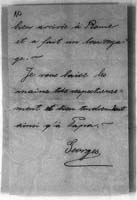 bien arrivée à Rome
et a fait un bon voya-
ge. —
Je vous baise les
mains très respectueuse-
ment et bien tendrement
ainsi qu'à Papa.
Georges